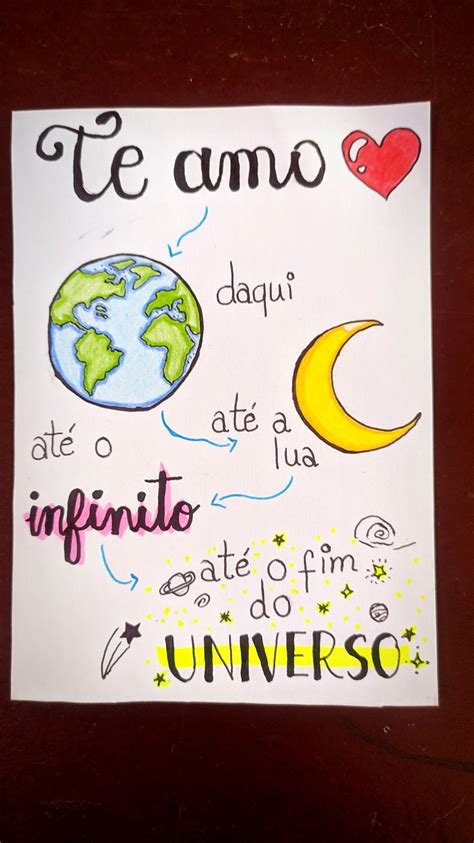 Te amo
daqui
até a
lua
até o
infinito
até o fim
do
UNIVERSO